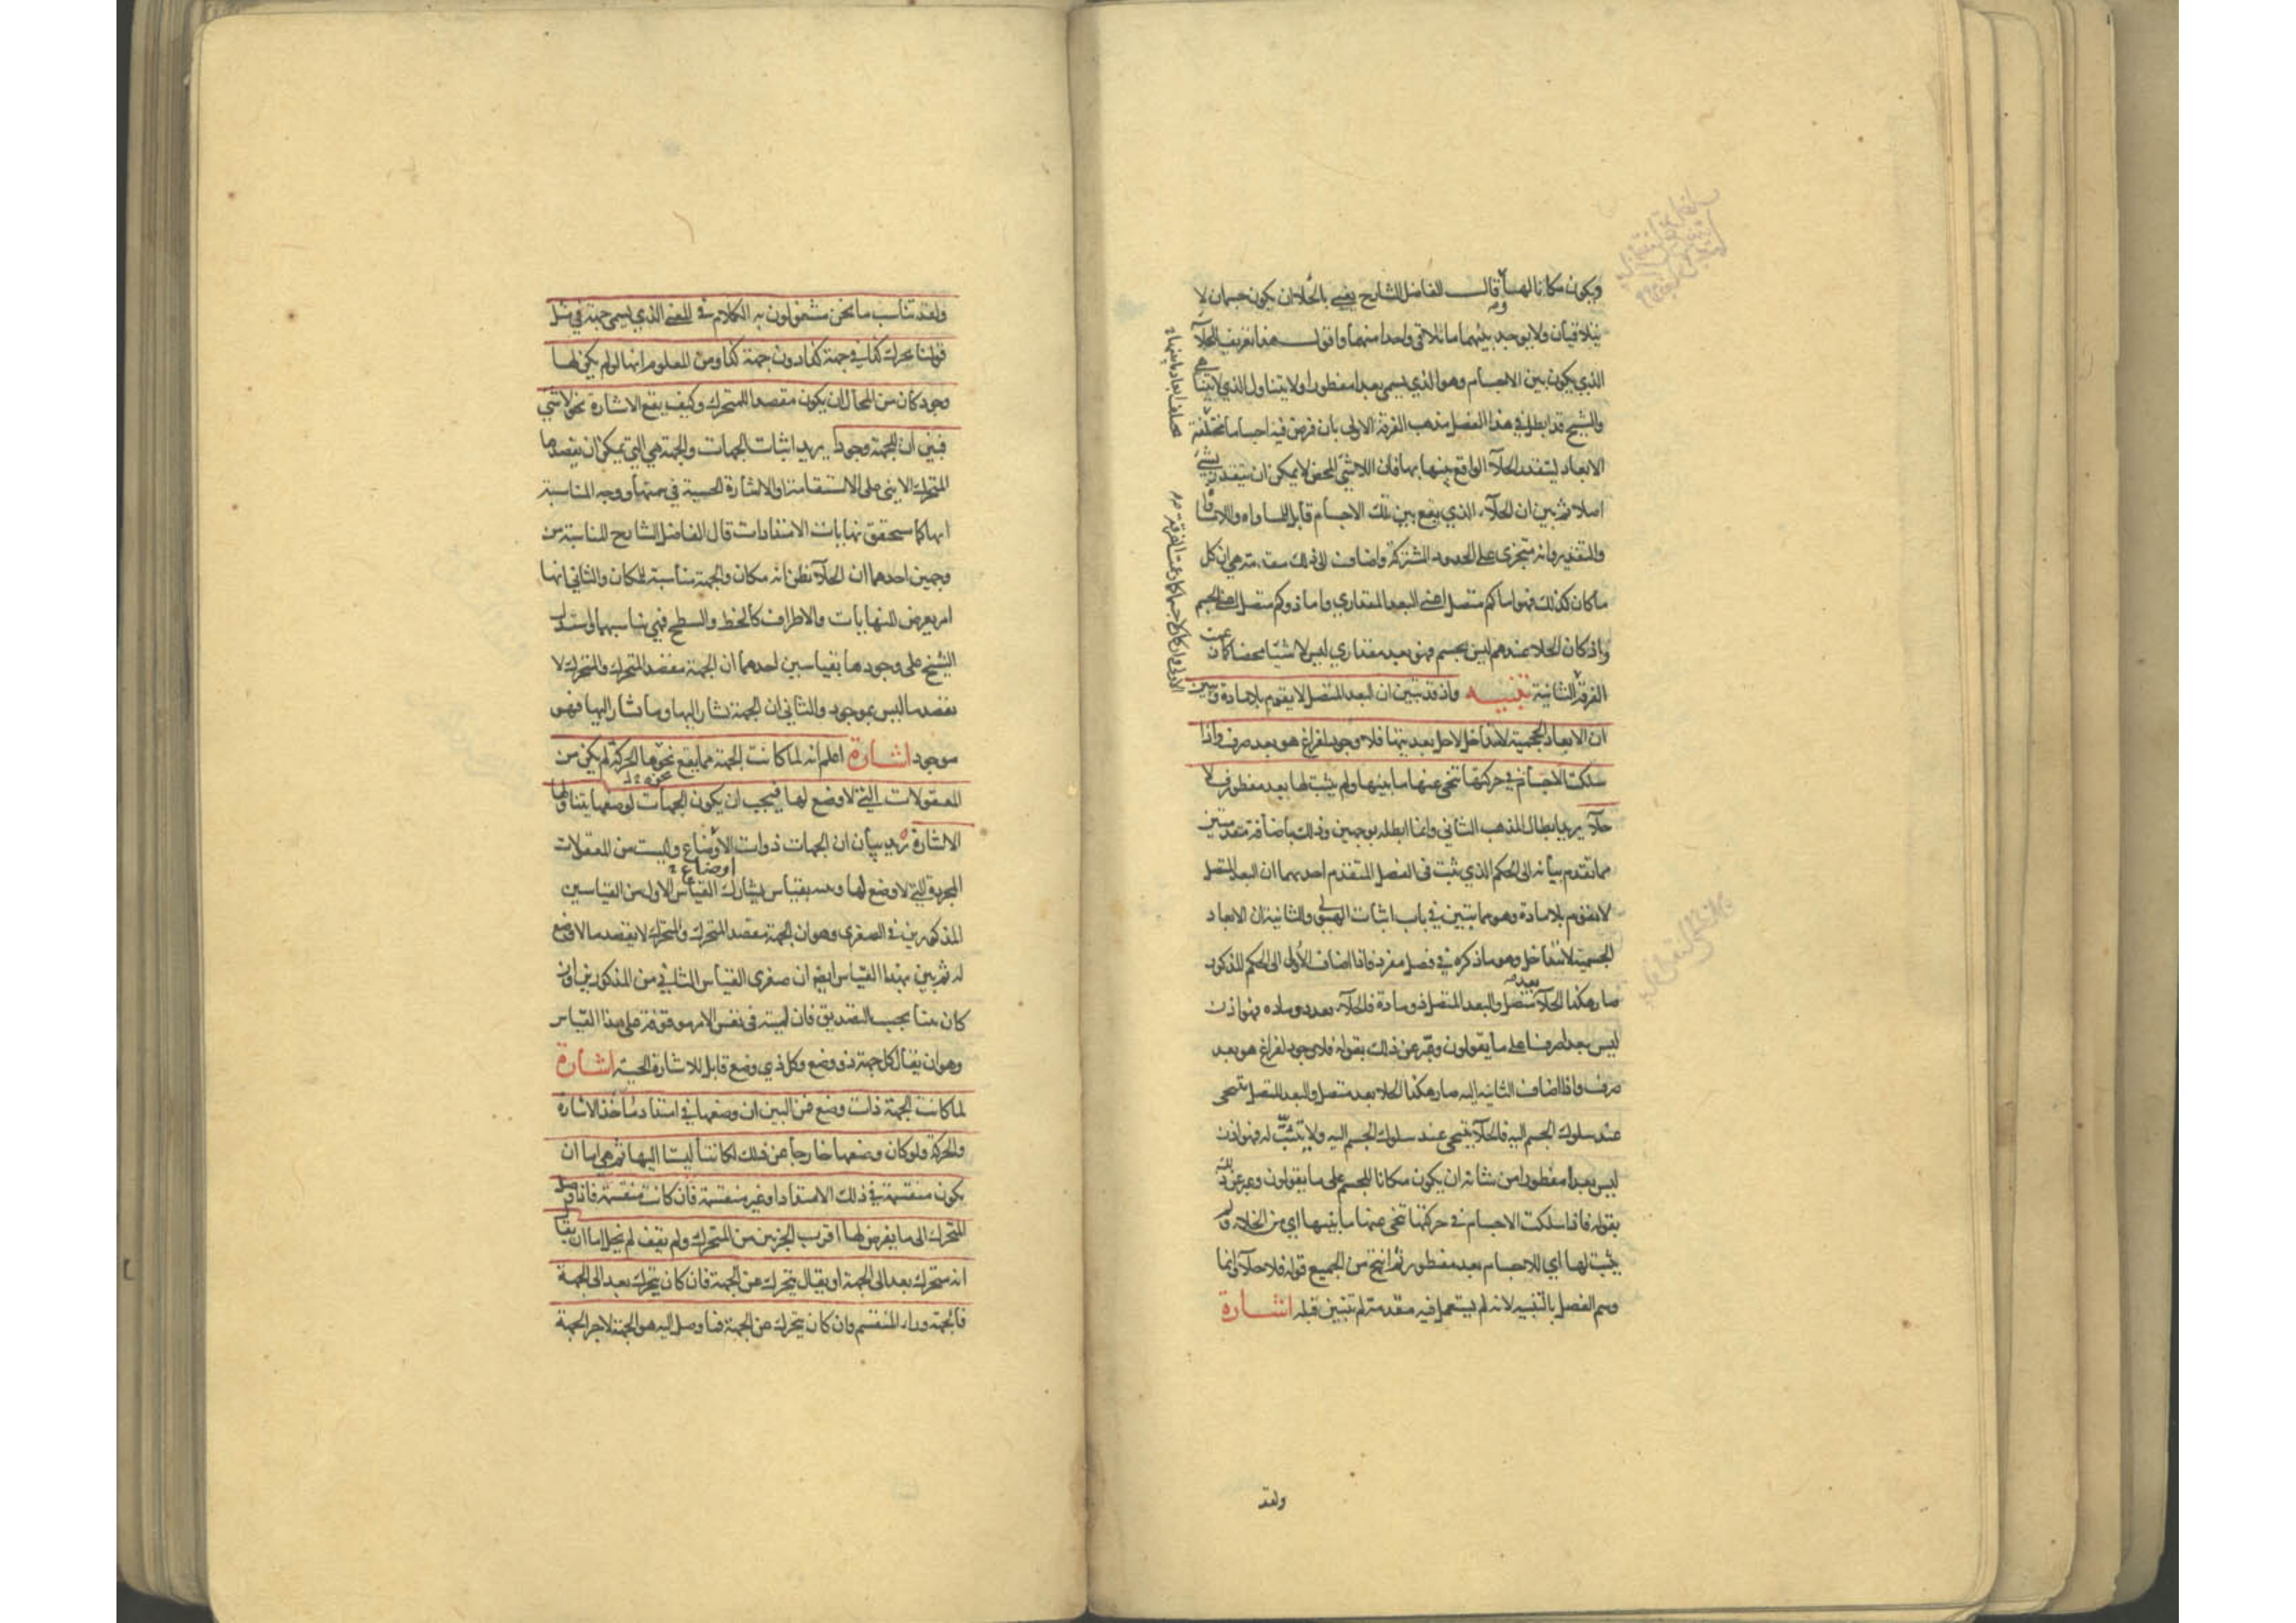 ويكون مكانا لها قال الفاضل الشارح يعني بالخلا ان يكون جسمان لا
يتلاقيان ولا يوجد بينهما ما يلاقي واحدا منهما واقول هذا تعريف الخلآ
الذي يكون بين الاجسام وهو الذي يسمى بعدا مفطورا ولا يتناول الذي لا يتناهى
والشيخ قد ابطل في هذا الفصل مذهب الفرقة الاولى بان فرض فيه اجساما مختلفة
الابعاد ليتقدر الخلآ الواقع بينها بها فان اللاشئ المحض لا يمكن ان يتقدر بشئ
اصلا ثم بين ان الخلآء الذي يقع بين تلك الاجسام قابل للمساواه واللامساواة
والتقدير وانه متجزى على الحدود المشتركة واضاف الى ذلك مقدمة هي ان كل
ما كان كذلك فهو اما كم متصل اعني البعد المقداري واما ذو كم متصل اعني الجسم
واذ كان الخلا عندهم ليس بجسم فهو بعد مقداري ليس لا شيئا محضا كما زعمت
الفرقة الثانية تنبيه واذ قد تبين ان البعد المتصل لا يقوم بلا مادة وتبين
ان الابعاد الجسمية لا تتداخل لاجل بعديتها فلا وجود لفراغ هو بعد صرف واذا
سلكت الاجسام في حركتها تنحى عنها ما بينها ولم يثبت لها بعد مفطور فلا
خلآ يريد ابطال المذهب الثاني وانما ابطله بوجهين وذلك باضافة مقدمتين
مما تقدم بيانه الى الحكم الذي ثبت في الفصل المتقدم احديهما ان البعد المتصل
لا يقوم بلا مادة وهو مما تبين في باب اثبات الهيولى والثانية ان الابعاد
الجسمية لا تتداخل وهو ما ذكره في فصل مفرد فاذا اضاف الاولى الى الحكم المذكور
صار هكذا الخلآ بعد متصل والبعد المتصل ذو مادة فالخلآء بعد ذو ماده فهو اذن
ليس بعدا صرفا على ما يقولون وعبر عن ذلك بقوله فلا وجود لفراغ هو بعد
صرف واذا اضاف الثانيه اليه صار هكذا الخلا بعد متصل والبعد المتصل يتنحى
عند سلوك الجسم اليه فالخلآ يتنحى عند سلوك الجسم اليه ولا يتثبت له فهو اذن
ليس بعدا مفطورا من شانه ان يكون مكانا للجسم على ما يقولون وعبر عن ذلك
بقوله فاذا سلكت الاجسام في حركتها تنحى عنها ما بينها اي من الخلاء ولم
يثبت لها اي للاجسام بعد مفطور ثم انتج من الجميع قوله فلا خلآ وانما
وسم الفصل بالتنبيه لانه لم يستعمل فيه مقدمة لم تتبين قبله اشارة
ولقد
ولقد تناسب ما نحن مشغولون به الكلام في المعنى الذي يسمى جهة في مثل
قولنا تحرك كذا في جهة كذا دون جهة كذا ومن المعلوم انها لو لم يكن لها
وجود كان من المحال ان يكون مقصدا للمتحرك وكيف يقع الاشارة نحو لا شئ
فبين ان للجهة وجودا يريد اثبات الجهات والجهة هي التي يمكن ان يقصدها
المتحرك الاينى على الاستقامة او الاشارة الحسية في سمتها ووجه المناسبة
انها كما سيحقق نهايات الامتدادات قال الفاضل الشارح المناسبة من
وجهين احدهما ان الخلآ يظن انه مكان والجهة مناسبة للمكان والثاني انها
امر يعرض للنهايات والاطراف كالخط والسطح فهي تناسبهما واستدل
الشيخ على وجودها بقياسين احدهما ان الجهة مقصد المتحرك والمتحرك لا
يقصد ما ليس بموجود والثاني ان الجهة يشار اليها وما يشار اليها فهو
موجود اشارة اعلم انه لما كانت الجهة مما يقع نحوها الحركة لم يكن من
المعقولات التي لا وضع لها فيجب ان يكون الجهات لوضعها يتناولها
الاشارة يريد بيان ان الجهات ذوات الاوضاع وليست من المعقولات
اوضاع
المجردة التي لا وضع لها وبينه بقياس يشارك القياس الاول من القياسين
المذكورين في الصغرى وهو ان الجهة مقصد المتحرك والمتحرك لا يقصد ما لا وضع
له ثم بين بهذا القياس ايض ان صغرى القياس الثاني من المذكورين وان
كان بينا يجب التصديق فان لميته في نفس الامر موقوفة على هذا القياس
وهو ان يقال كل جهة ذو وضع وكل ذي وضع قابل للاشارة الحسية اشارة
لما كانت الجهة ذات وضع فمن البين ان وضعها في امتداد مأخذ الاشارة
والحركة ولو كان وضعها خارجا عن ذلك لكانتا ليستا اليها ثم هي اما ان
يكون منقسمة في ذلك الامتداد او غير منقسمة فان كانت منقسمة فاذا وصل
المتحرك الى ما يفرض لها اقرب الجزئين من المتحرك ولم تقف لم يخل اما ان يقال
انه متحرك بعد الى الجهة او يقال يتحرك عن الجهة فان كان يتحرك بعد الى الجهة
فالجهة وراء المنقسم وان كان يتحرك عن الجهة فما وصل اليه هو الجهة لا جزء الجهة